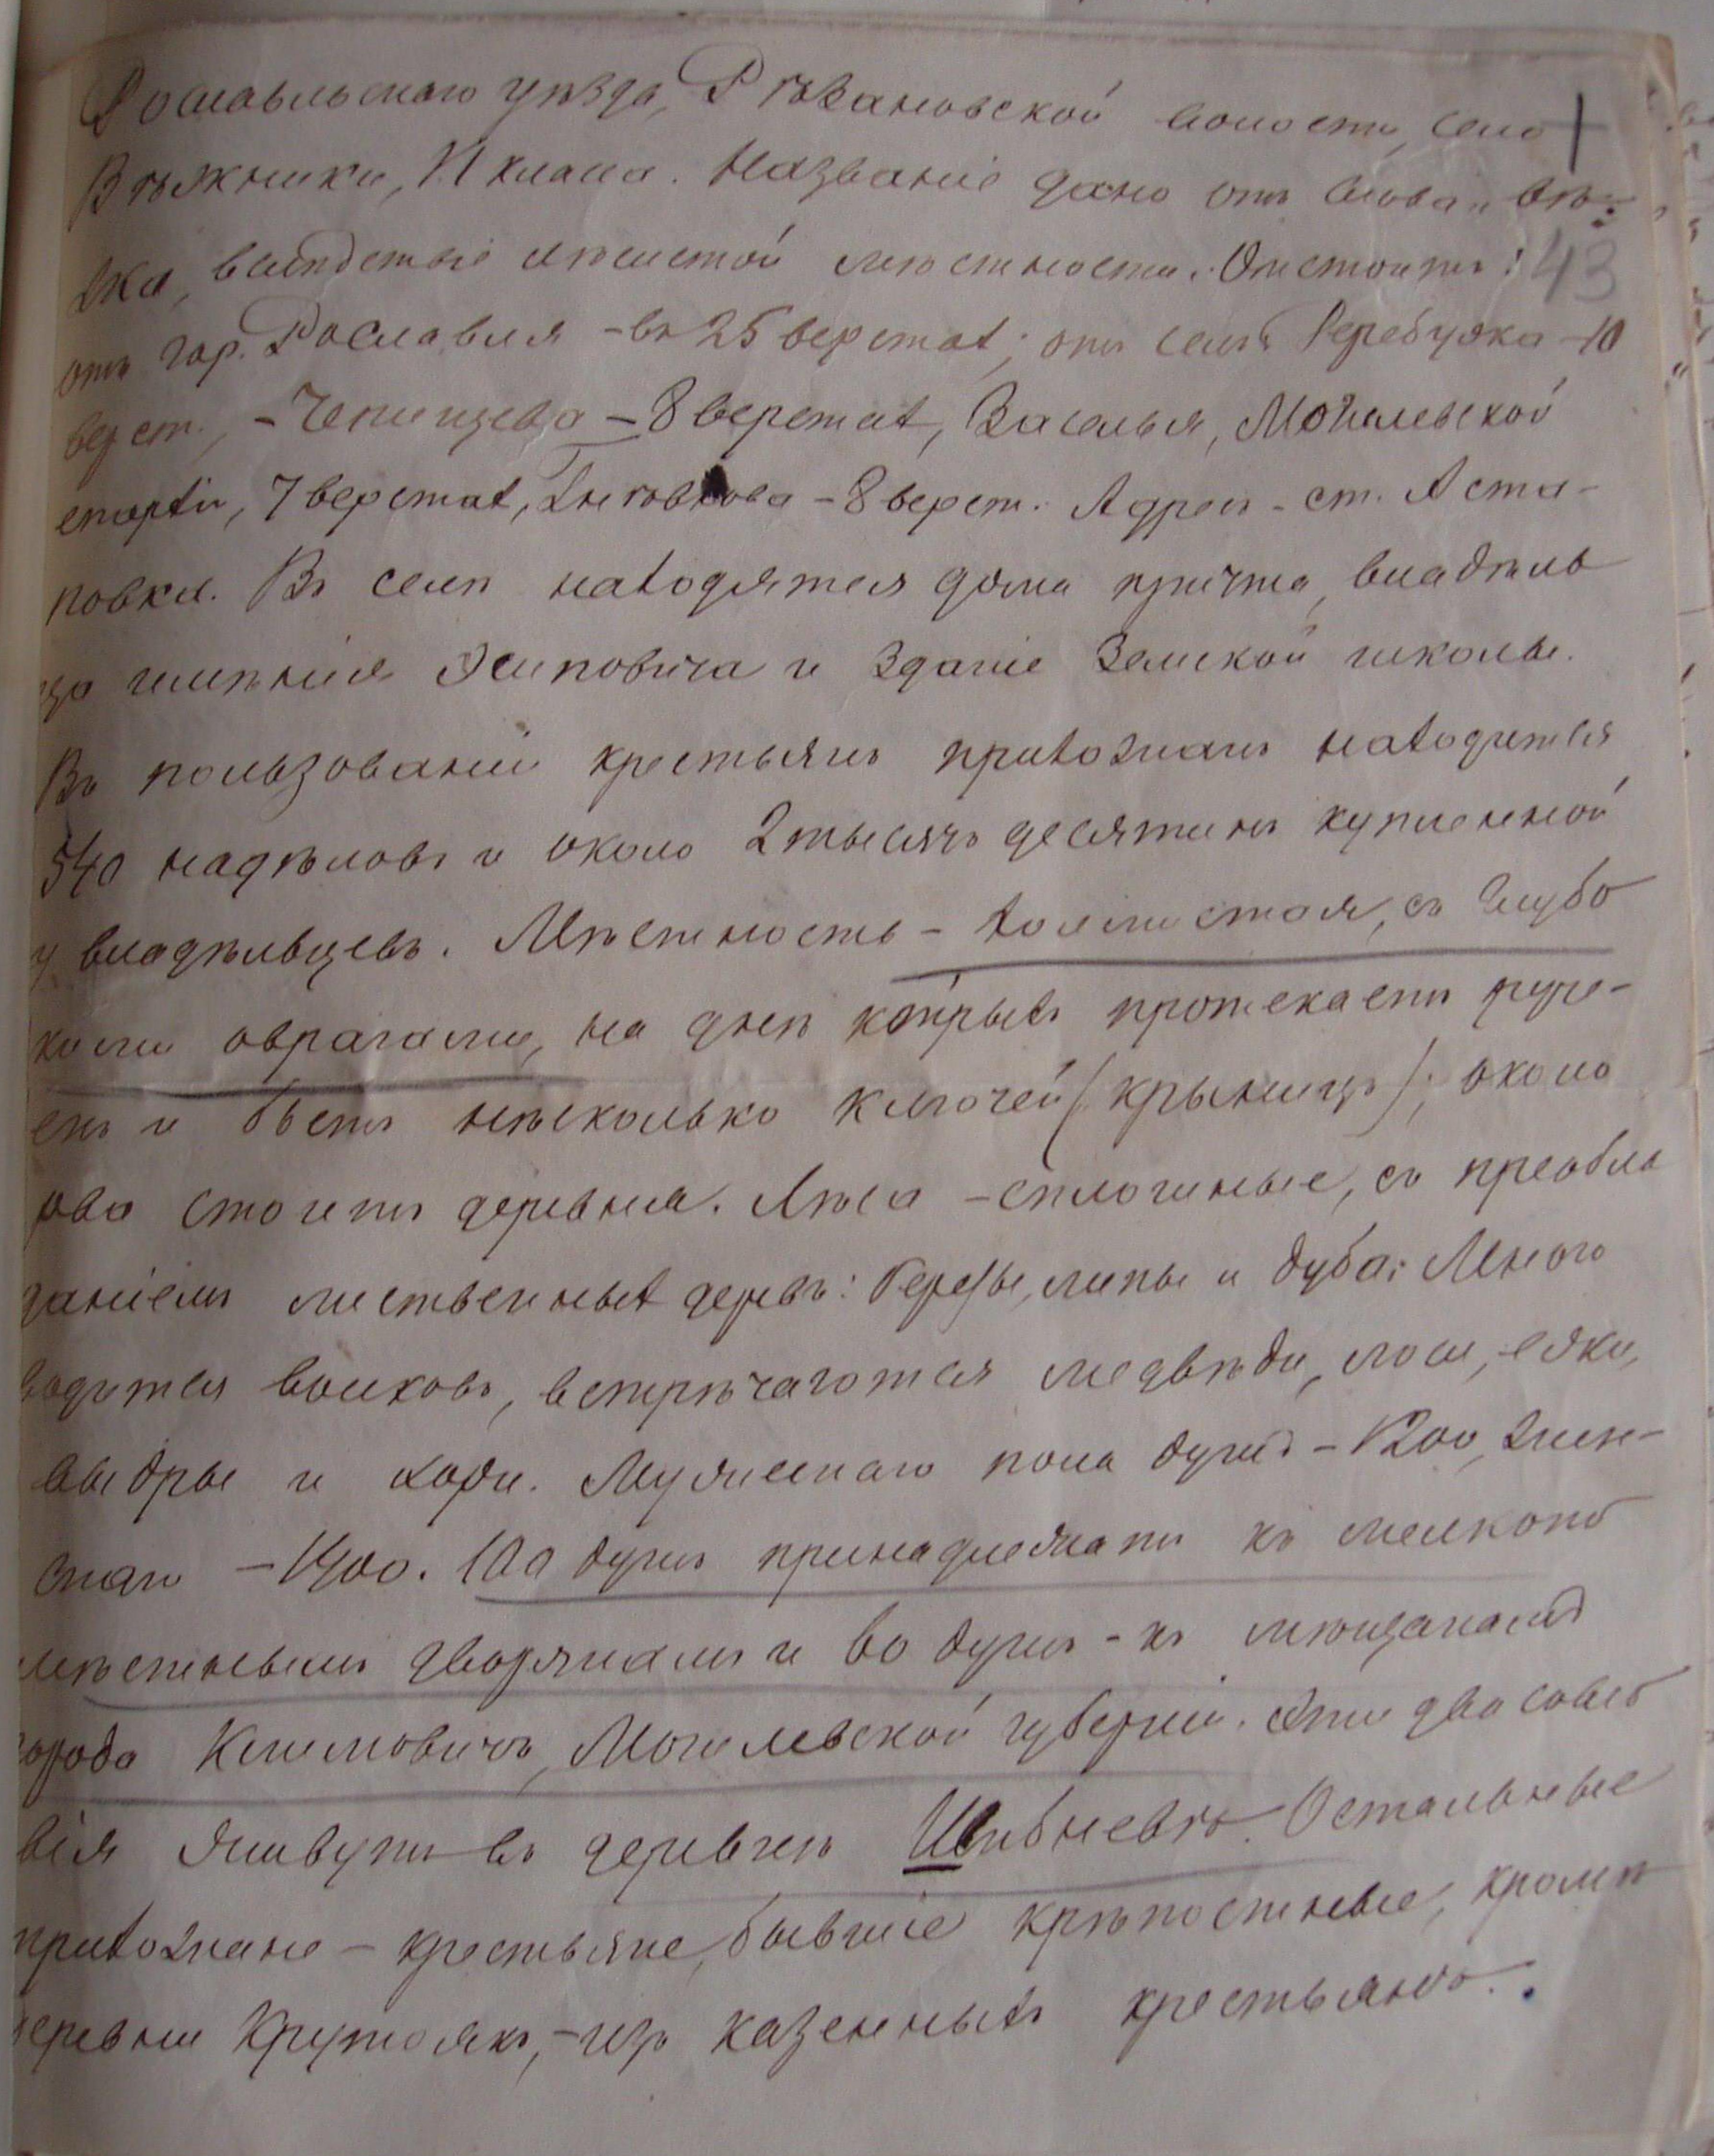 Рославльскаго уѣзда, Рѣзановской волости, село
Вѣжники, II класса. Названіе дано отъ слова „вѣ-
жа, вслѣдствіе лѣсистой мѣстности. Отстоитъ: 43
отъ гор. Рославля – въ 25 верстахъ; отъ села Теребужка – 10
верст., – Чепищева – 8 верстах, Заселья, Могилевской
епархіи, 7 верстах, – 8 верст. Адресъ – ст. Аста-
повка. Въ селѣ находятся дома причта, владѣль
ца имѣнія Осиповича и зданіе земской школы.
Въ пользованіи крестьянъ прихожанъ находится
540 надѣловъ и около 2 тысячъ десятинъ купленной
у владѣльцевъ. Мѣстность – холмистая, съ глубо
кими оврагами, на днѣ которыхъ протекаетъ руче-
екъ и бьетъ нѣсколько ключей (крыницъ); около
рва стоитъ деревня. Лѣса – сплошные, съ преобла
даніемъ лиственныхъ деревъ: березы, липы и дуба; Много
водится волковъ, встрѣчаются медвѣди, лоси,
выдры и хори. Мужескаго пола душъ – 1200, жен-
скаго – 1400. 100 душъ принадлежатъ къ мелкопо
мѣстнымъ дворянамъ и во душъ – къ мѣщанамъ
города Климовичъ, Могилевской губерніи. Эти два сосло
вія живутъ въ деревнѣ Шибневѣ. Остальные
прихожане – крестьяне, бывшіе крѣпостные, кромѣ
деревни Крутоякъ, – изъ казенныхъ крестьянъ.